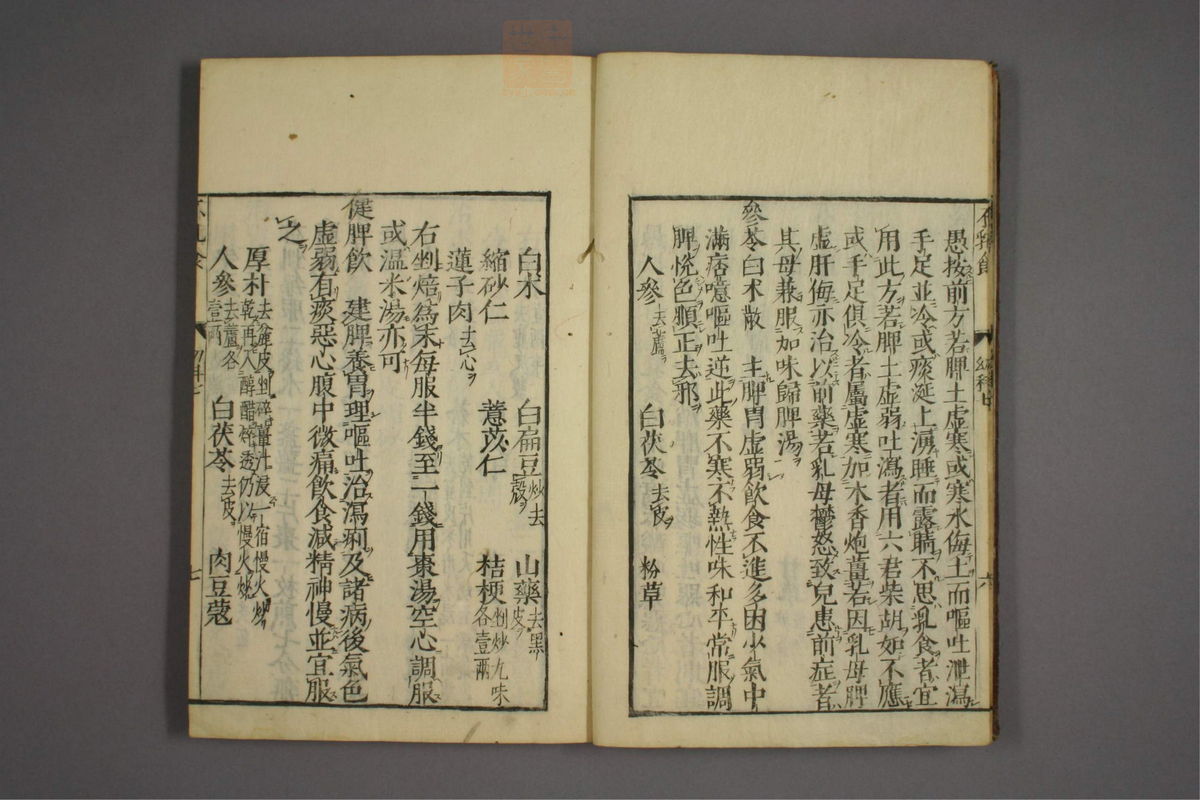 愚按前方若脾土虛寒或寒水侮土而嘔吐泄瀉
手足並冷或痰涎上湧睡而露睛不思乳食者宜
用此方若脾土虛弱吐瀉者用六君柴胡如不應
或手足俱冷者屬虛寒加木香炮薑若因乳母脾
虛肝侮亦治以前藥若乳母鬱怒致兒患前症者
其母兼服加味歸脾湯
參苓白朮散 主脾胃虛弱飲食不進多困少氣中
滿痞噫嘔吐逆此藥不寒不熱性味和平常服調
脾悅色順正去邪
人參去蘆 白茯苓去皮 粉草
白朮 白扁豆炒去殼 山藥去黑皮
縮砂仁 薏苡仁 桔梗剉炒九味各壹兩
蓮子肉去心
右剉焙爲末每服半錢至一錢用棗湯空心調服
或溫米湯亦可
健脾飲 建脾養胃理嘔吐治瀉痢及諸病後氣色
虛弱有痰惡心腹中微痛飲食減精神慢並宜服
之
厚朴去粗皮剉碎薑汁浸一宿慢火炒乾再入醇醋碎透仍以慢火炒
人參去蘆各壹兩 白茯苓去皮 肉豆蔻
七